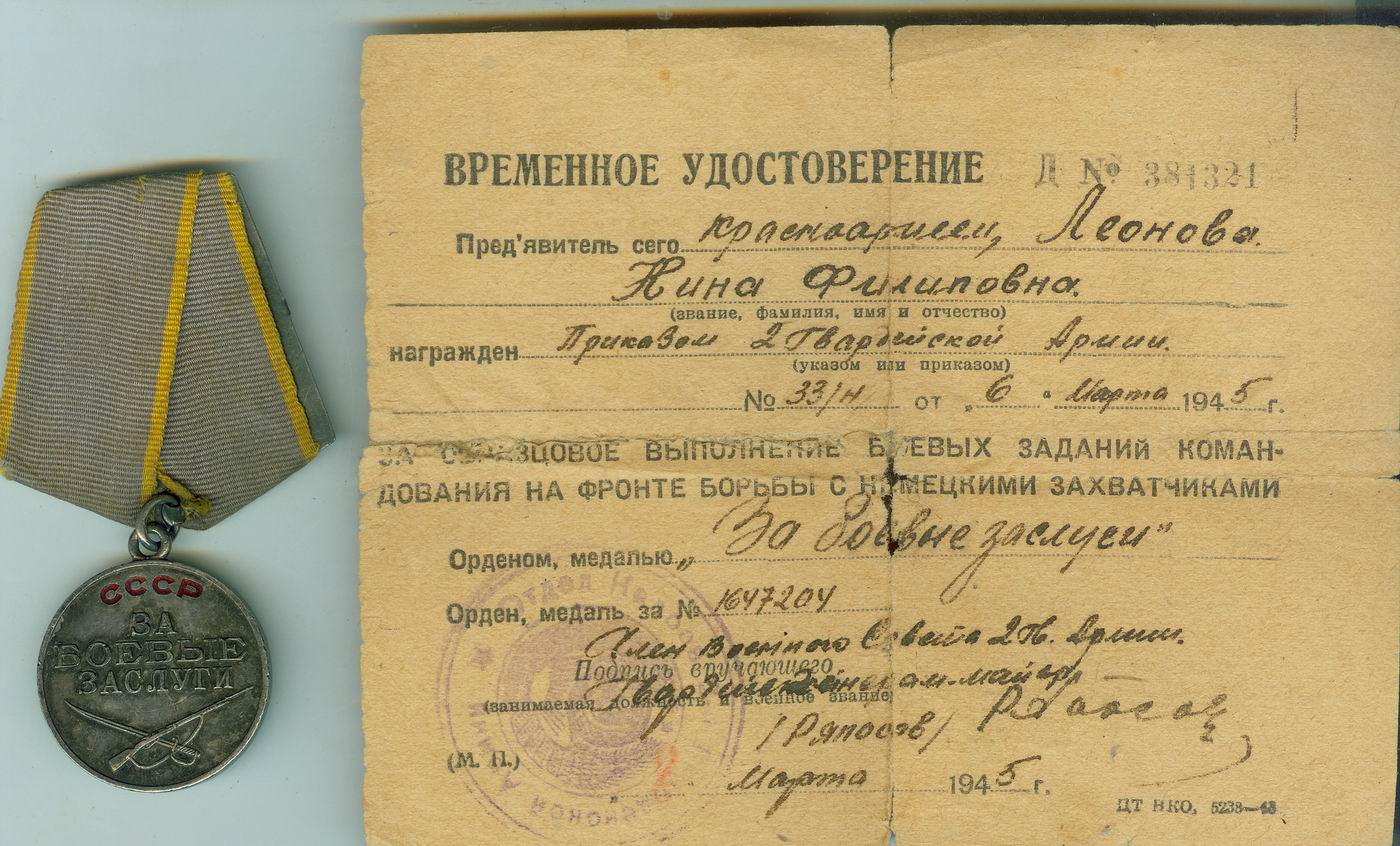 СССР
ЗА
БОЕВЫЕ
ЗАСЛУГИ
ВРЕМЕННОЕ УДОСТОВЕРЕНИЕ Д № 381321
Пред'явитель сего красноармеец Леонова
Нина Филиповна.
(звание, фамилия, имя и отчество)
награжден Приказом 2 Гвардейской Армии.
(указом или приказом)
№ 33/н от „6" Марта 1945 г.
ЗА ОБРАЗЦОВОЕ ВЫПОЛНЕНИЕ БОЕВЫХ ЗАДАНИЙ КОМАН-
ДОВАНИЯ НА ФРОНТЕ БОРЬБЫ С НЕМЕЦКИМИ ЗАХВАТЧИКАМИ
Орденом, медалью „За боевые заслуги"
Орден, медаль за № 1647204
Член Военного Совета 2 Гв. Армии.
Подпись вручающего
Гвардии генерал-майор
(занимаемая должность и военное звание)
(М. П.)
Марта 1945 г.
ЦТ НКО, 5238—43
Отдел